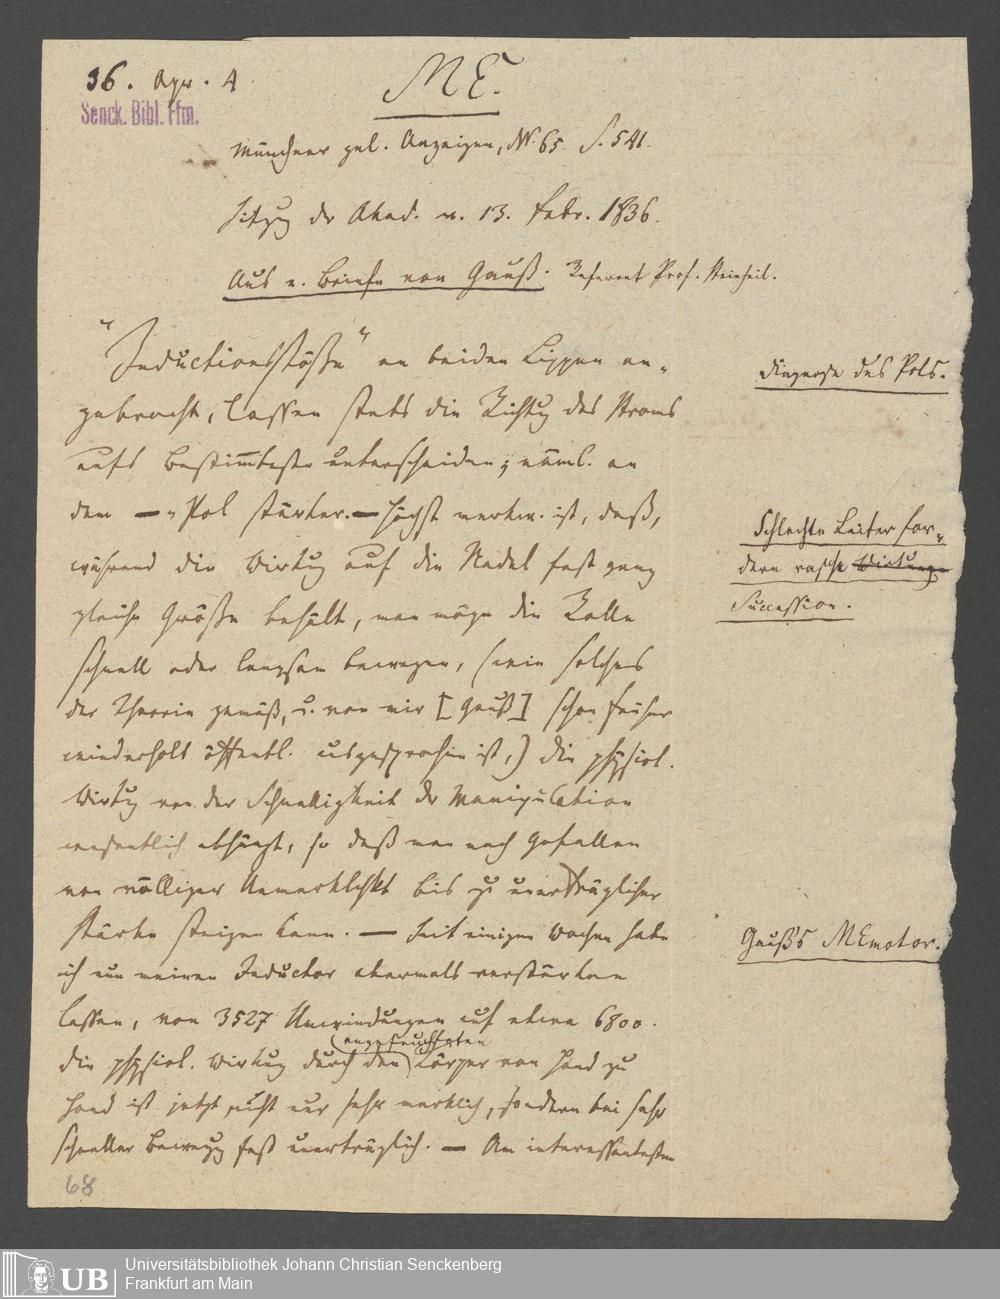 36. Apr. 4
ME.
Senck. Bibl. Ffm.
Münchner gel. Anzeigen, N. 65. S. 541.
Sitzg der Akad. v. 13. Febr. 1836.
Aus e. Briefe von Gauß. Referent Prof. Steinheil.
"Inductionsstöße" an beiden Lippen an-
gebracht, lassen stets die Richtg des Stroms
aufs Bestimmteste unterscheiden; näml. an
dem – Pol stärker. — Höchst merkw. ist, daß,
während die Wirkg auf die Nadel fast ganz
gleiche Größe behält, man möge die Rolle
schnell oder langsam bewegen, (wie solches
der Theorie gemäß, u. von mir [Gauß] schon früher
wiederholt öffentl. ausgesprochen ist,) die physiol.
Wirkg von der Schnelligkeit der Manipulation
wesentlich abhängt, so daß man nach Gefallen
von völliger Unmerklichkt bis zu unerträglicher
Stärke steigen kann. — Seit einigen Wochen habe
ich nun meinen Inductor abermals verstärken
lassen, von 3527 Umwindungen auf etwa 6800.
angefeuchteten
Die physiol. Wirkug durch den Körper von Hand zu
Hand ist jetzt nicht nur sehr merklich, sondern bei sehr
schneller Bewegg fast unerträglich. — Am interessantesten
Diagnose des Pols.
Schlechte Leiter for-
dern rasche Wirkung
Succession.
Gauß's MEmotor.
68
UB
Universitätsbibliothek Johann Christian Senckenberg
Frankfurt am Main